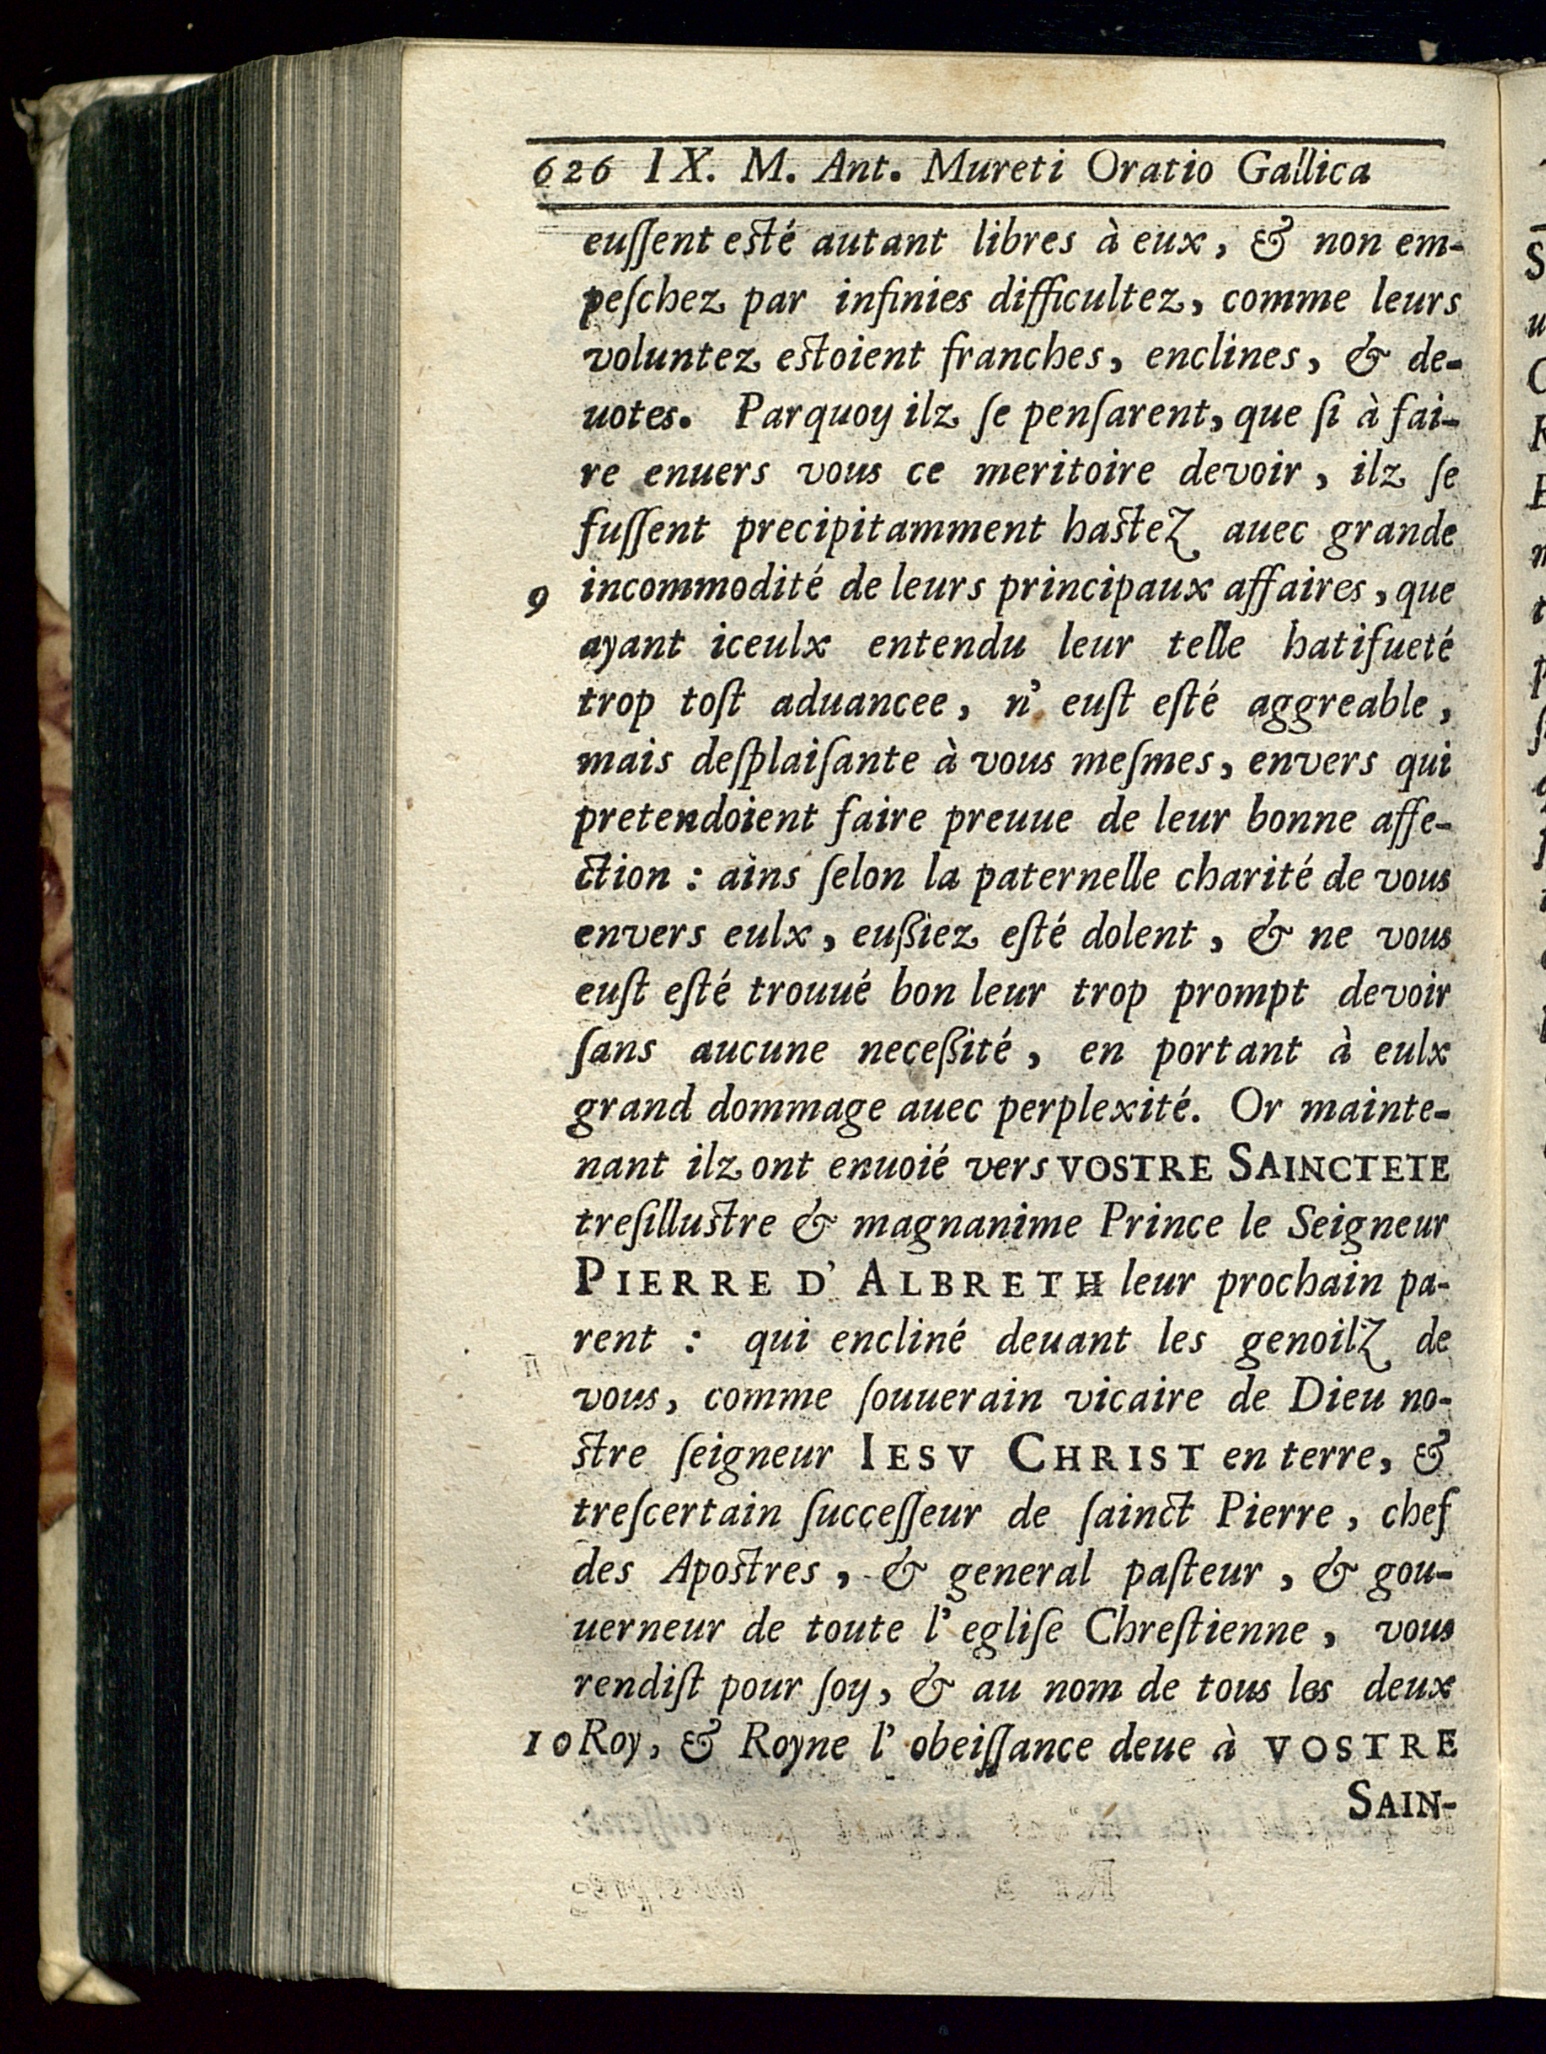 626 IX. M. Ant. Mureti Oratio Gallica
euſſent eſté autant libres à eux, & non em-
peſchez par infinies difficultez, comme leurs
voluntez eſtoient franches, enclines, & de-
uotes. Parquoy ilz ſe penſarent, que ſi à fai-
re enuers vous ce meritoire devoir, ilz ſe
fuſſent precipitamment haſtez auec grande
9 incommodité de leurs principaux affaires, que
ayant iceulx entendu leur telle hatifueté
trop toſt aduancee, n' euſt eſté aggreable,
mais deſplaiſante à vous meſmes, envers qui
pretendoient faire preuue de leur bonne affe-
ction : ains ſelon la paternelle charité de vous
envers eulx, eußiez eſté dolent, & ne vous
euſt eſté trouué bon leur trop prompt devoir
ſans aucune neceßité, en portant à eulx
grand dommage auec perplexité. Or mainte-
nant ilz ont enuoié vers VOSTRE SAINCTETE
treſilluſtre & magnanime Prince le Seigneur
PIERRE D' ALBRETH leur prochain pa-
rent : qui encliné deuant les genoilz de
vous, comme ſouuerain vicaire de Dieu no-
ſtre ſeigneur IESV CHRIST en terre, &
treſcertain ſucceſſeur de ſainct Pierre, chef
des Apoſtres, & general paſteur, & gou-
uerneur de toute l' egliſe Chreſtienne, vous
rendiſt pour ſoy, & au nom de tous les deux
10 Roy, & Royne l' obeiſſance deue à VOSTRE
SAIN-